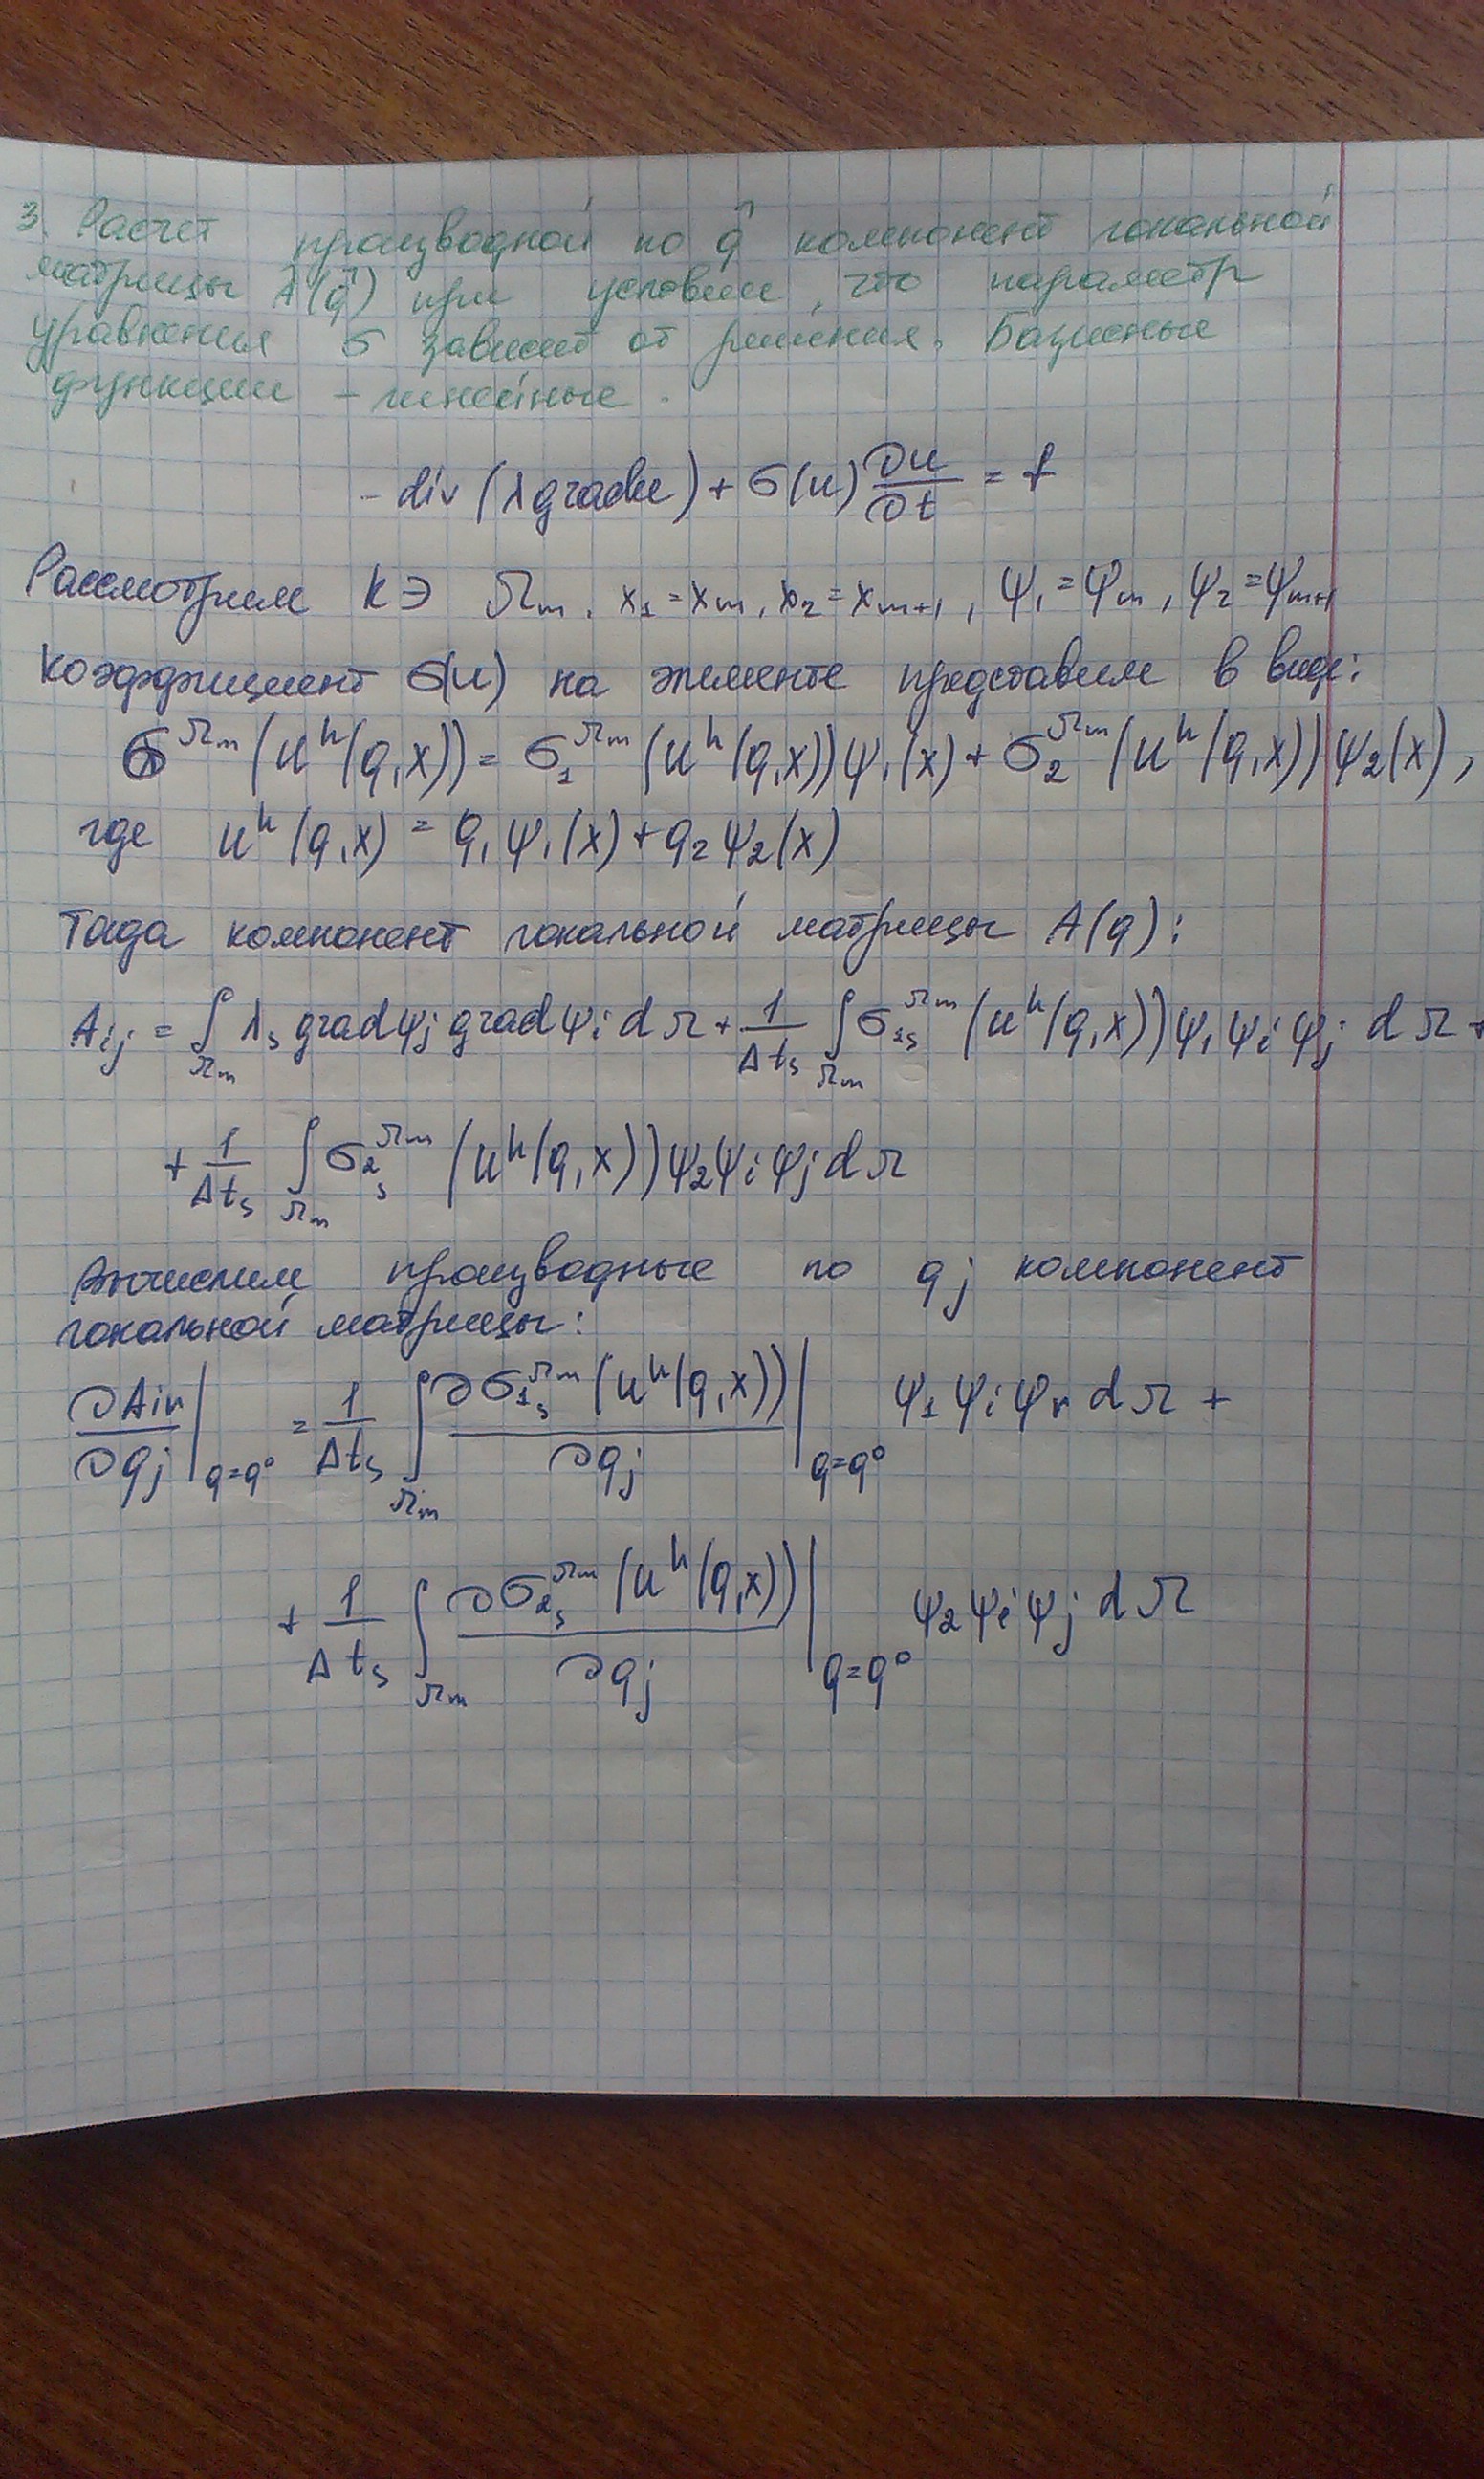 3. Расчет производной по q⃗ компонент локальной
матрицы A(q⃗) при условии, что параметр
уравнения σ зависит от решения. Базисные
функции – линейные.
- div (λ grad u) + σ(u) ∂u/∂t = f
Рассмотрим КЭ Ωm, x₁ = xm, x₂ = xm+1, ψ₁ = ψm, ψ₂ = ψm+1
Коэффициент σ(u) на элементе представим в виде:
σ^Ωm (u^h(q,x)) = σ₁^Ωm (u^h(q,x)) ψ₁(x) + σ₂^Ωm (u^h(q,x)) ψ₂(x),
где u^h(q,x) = q₁ψ₁(x) + q₂ψ₂(x)
Тогда компонент локальной матрицы A(q):
Aij = ∫_Ωm λs grad ψj grad ψi dΩ + 1/Δts ∫_Ωm σ1s^Ωm (u^h(q,x)) ψ₁ψiψj dΩ +
+ 1/Δts ∫_Ωm σ2s^Ωm (u^h(q,x)) ψ₂ψiψj dΩ
Вычислим производные по qj компонент
локальной матрицы:
∂Air/∂qj |q=q⁰ = 1/Δts ∫_Ωm ∂σ1s^Ωm (u^h(q,x))/∂qj |q=q⁰ ψ₁ψiψr dΩ +
+ 1/Δts ∫_Ωm ∂σ2s^Ωm (u^h(q,x))/∂qj |q=q⁰ ψ₂ψiψj dΩ